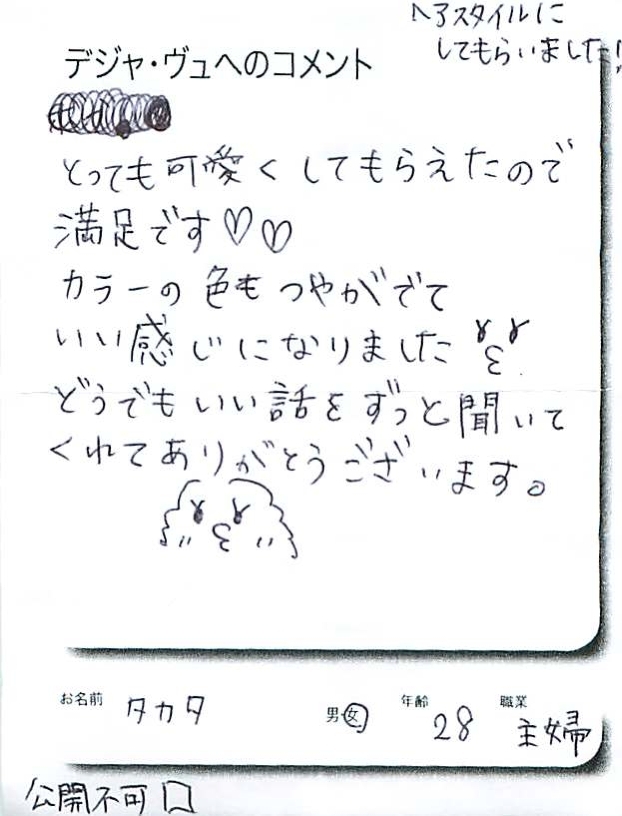 ヘアスタイルに
してもらいました!
デジャ・ヴュへのコメント
とっても可愛くしてもらえたので
満足です♡♡
カラーの色もつやがでて
いい感じになりました
どうでもいい話をずっと聞いて
くれてありがとうございます。
お名前 タカタ 男・女 年齢 28 職業 主婦
公開不可 □